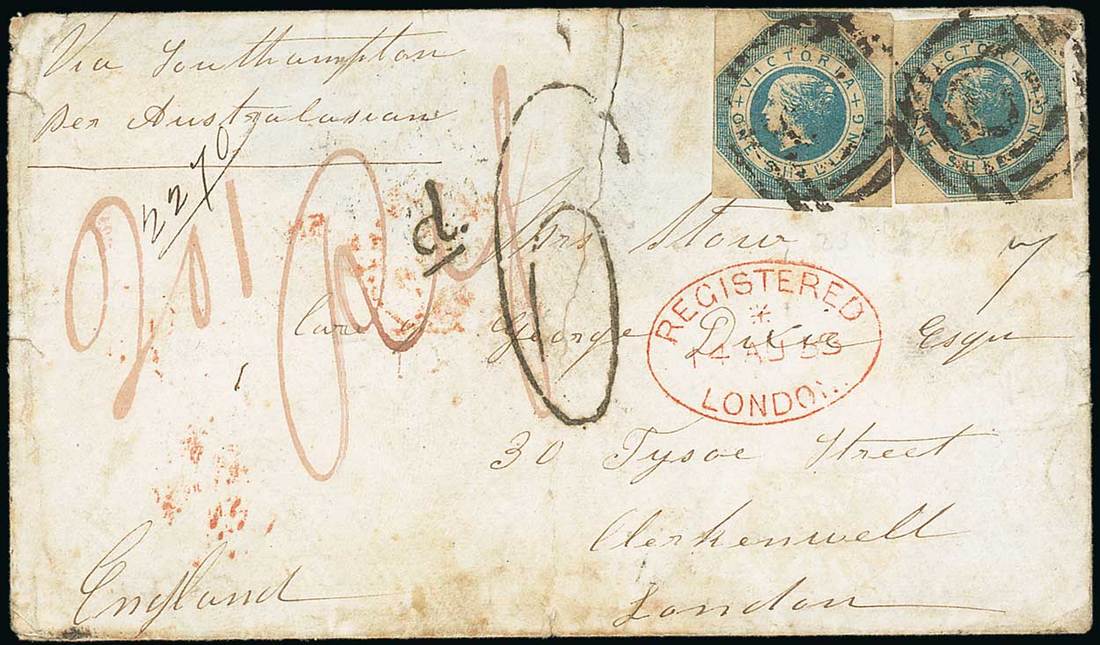 Via Southampton
per Australasian
2270
+ VICTORIA +
ONE SHILLING
VICTORIA
ONE SHILLING
d.
Mrs Stow
REGISTERED
*
4 AU 58
LONDON
Care of George Esqu
30 Tysoe Street
Clerkenwell
London
England